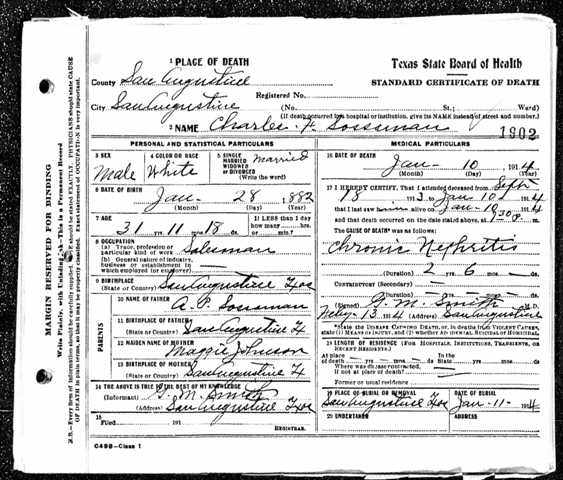 1 PLACE OF DEATH
Texas State Board of Health
STANDARD CERTIFICATE OF DEATH
County San Augustine
Registered No.
City San Augustine (No. St.; Ward)
(If death occurred in a hospital or institution, give its NAME instead of street and number.)
2 NAME Charles H Sossman
1902
PERSONAL AND STATISTICAL PARTICULARS
3 SEX Male
4 COLOR OR RACE White
5 SINGLE MARRIED WIDOWED or DIVORCED (Write the word) Married
6 DATE OF BIRTH
Jan- 28 1882
(Month) (Day) (Year)
7 AGE
31 yrs. 11 mos. 18 ds.
If LESS than 1 day how many hrs. or min.
8 OCCUPATION
(a) Trade, profession or particular kind of work Salesman
(b) General nature of industry, business or establishment in which employed (or employer)
9 BIRTHPLACE
(State or Country) San Augustine
PARENTS
10 NAME OF FATHER A. P. Sossman
11 BIRTHPLACE OF FATHER
(State or Country) San Augustine
12 MAIDEN NAME OF MOTHER Maggie Johnson
13 BIRTHPLACE OF MOTHER
(State or Country) San Augustine
14 THE ABOVE IS TRUE TO THE BEST OF MY KNOWLEDGE
(Informant) Smith
(Address) San Augustine
15
Filed 191
REGISTRAR.
C498-Class 1
MEDICAL PARTICULARS
16 DATE OF DEATH
Jan- 10 1914
(Month) (Day) (Year)
17 I HEREBY CERTIFY, That I attended deceased from Sept
18 191 3, to Jan-10 1914
that I last saw alive on Jan-10 1914
and that death occurred on the date stated above, at m.
The CAUSE OF DEATH* was as follows:
Chronic Nephritis
(Duration) 2 yrs. 6 mos. ds.
Contributory (Secondary)
(Duration) yrs. mos. ds.
(Signed) G. M. Smith M.D.
13 1914 (Address) San Augustine
*State the DISEASE CAUSING DEATH, or, in deaths from VIOLENT CAUSES, state (1) MEANS OF INJURY, and (2) whether ACCIDENTAL, SUICIDAL or HOMICIDAL.
18 LENGTH OF RESIDENCE (For Hospitals, Institutions, Transients, or Recent Residents.)
At place of death yrs. mos. ds. In the State yrs. mos. ds.
Where was disease contracted, if not at place of death?
Former or usual residence
19 PLACE OF BURIAL OR REMOVAL San Augustine
DATE OF BURIAL Jan-11- 1914
20 UNDERTAKER
ADDRESS
MARGIN RESERVED FOR BINDING
Write Plainly, with Unfading Ink—This is a Permanent Record
N.B.—Every item of information should be carefully supplied. AGE should be stated EXACTLY. PHYSICIANS should state CAUSE OF DEATH in plain terms, so that it may be properly classified. Exact statement of OCCUPATION is very important.